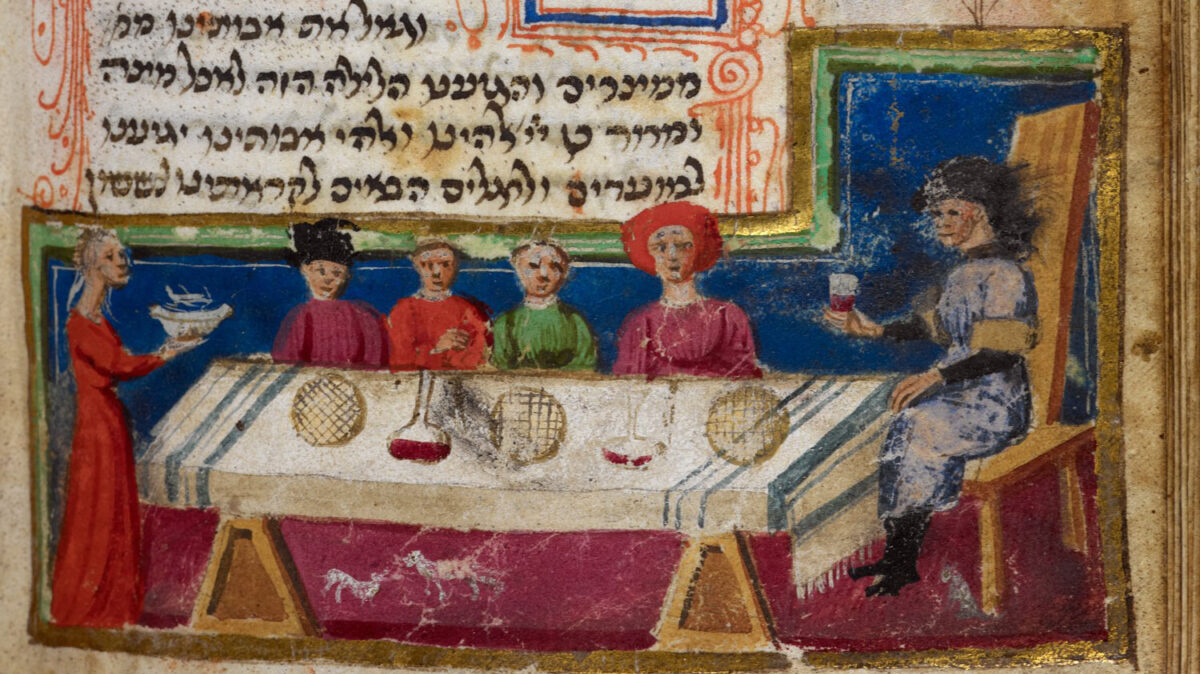 וגאל את אבותינו ממ
ממצרים והגיענו הלילה הזה לאכל מצה
ומרור כן יי אלהינו ואלהי אבותינו יגיענו
למועדים ולרגלים הבאים לקראתינו לששון